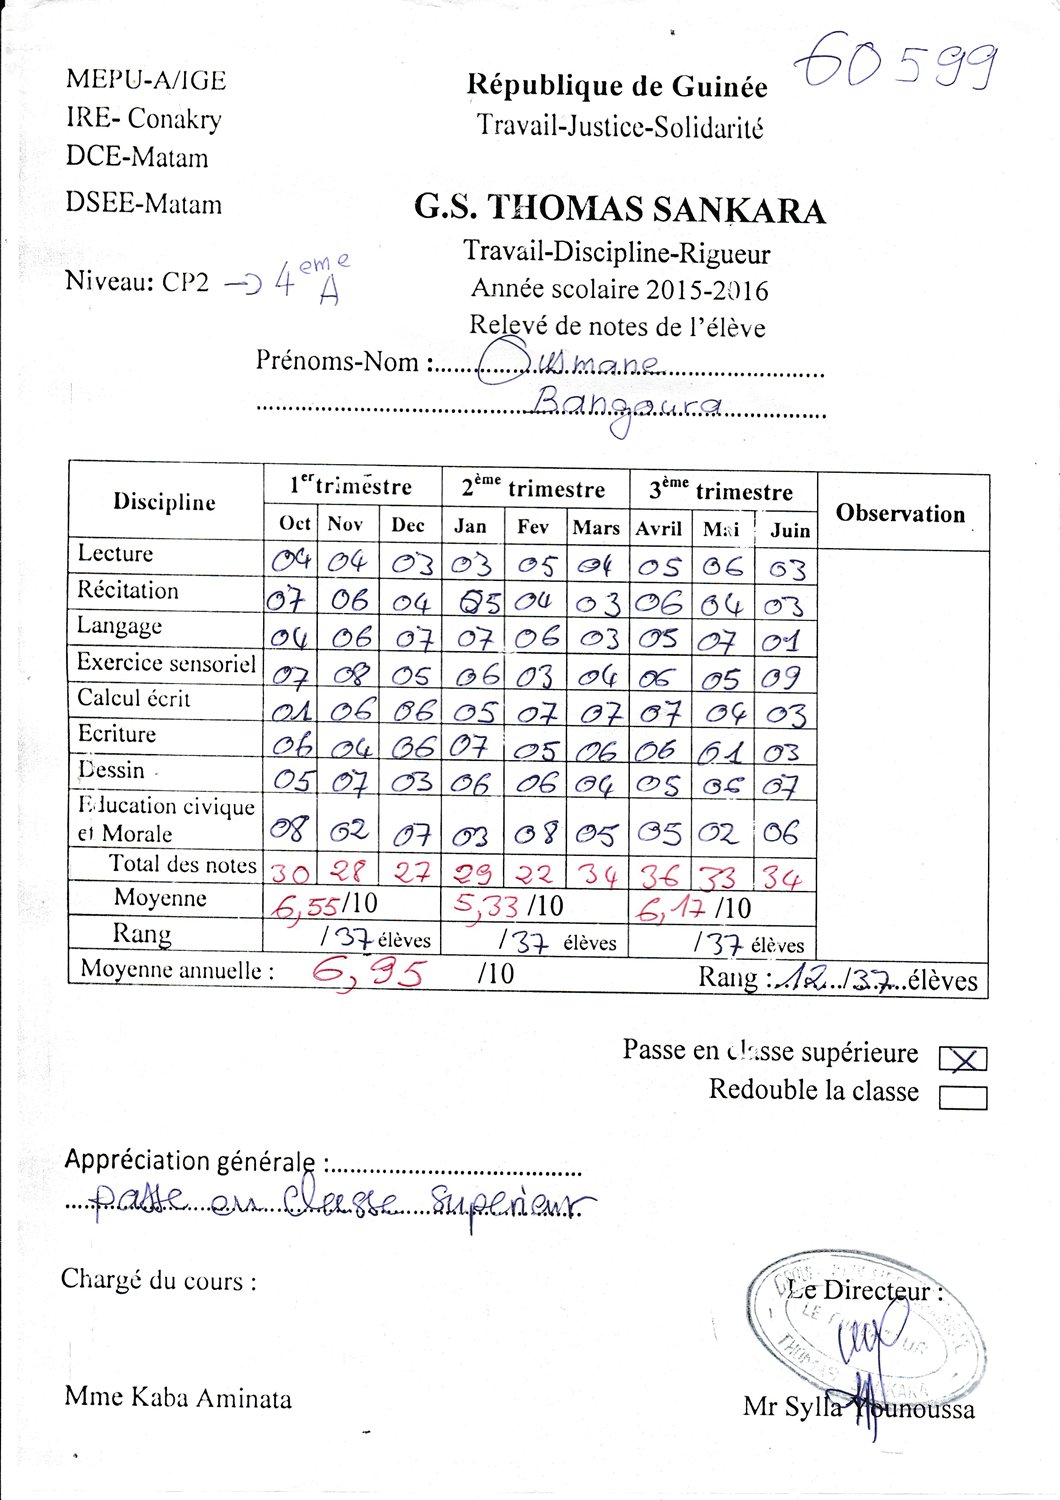 60599
MEPU-A/IGE
IRE- Conakry
DCE-Matam
DSEE-Matam
République de Guinée
Travail-Justice-Solidarité
G.S. THOMAS SANKARA
Travail-Discipline-Rigueur
Niveau: CP2 → 4eme A
Année scolaire 2015-2016
Relevé de notes de l'élève
Prénoms-Nom : Ousmane
Bangoura
Discipline 1er trimestre 2ème trimestre 3ème trimestre Observation
Oct Nov Dec Jan Fev Mars Avril Mai Juin
Lecture 04 04 03 03 05 04 05 06 03
Récitation 07 06 04 05 04 03 06 04 03
Langage 04 06 07 07 06 03 05 07 01
Exercice sensoriel 07 08 05 06 03 04 06 05 09
Calcul écrit 01 06 06 05 07 07 07 04 03
Ecriture 06 04 06 07 05 06 06 01 03
Dessin 05 07 03 06 06 04 05 06 07
Education civique
et Morale 08 02 07 03 08 05 05 02 06
Total des notes 30 28 27 29 22 34 36 33 34
Moyenne 6,55/10 5,33/10 6,17/10
Rang /37 élèves /37 élèves /37 élèves
Moyenne annuelle : 6,95 /10 Rang : 12 /37 élèves
Passe en classe supérieure X
Redouble la classe
Appréciation générale :
passe en classe Superieur
Chargé du cours :
Le Directeur :
LE DIRECTEUR
THOMAS SANKARA
Mme Kaba Aminata
Mr Sylla Younoussa